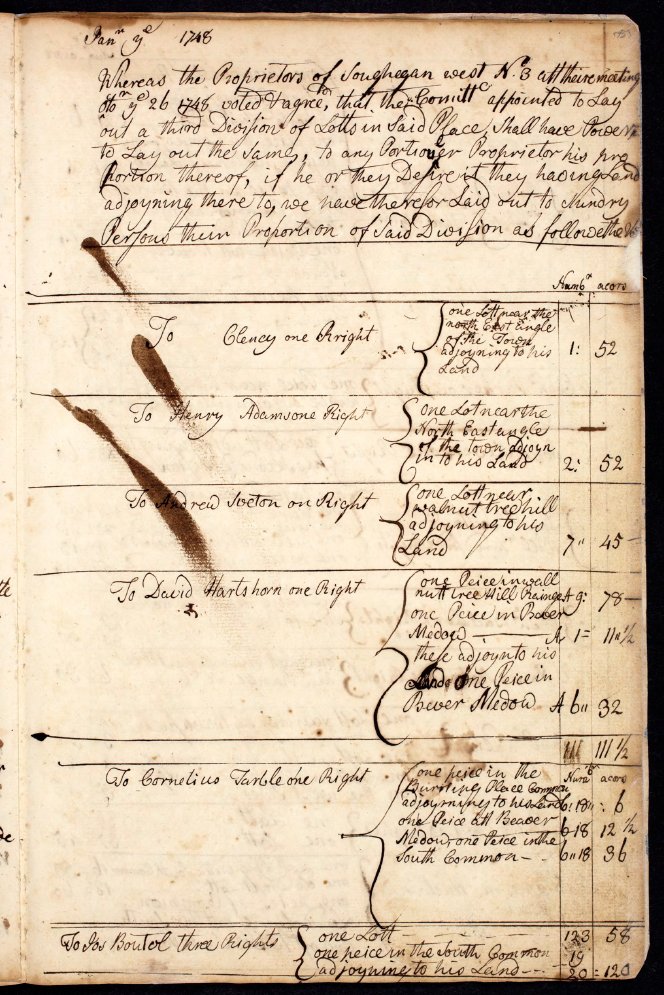 Janr ye 1748
Whereas the Proprietors of Souhegan west No 3 att theire meeting
ye 26 1748 voted & agree, that the Comitte appointed to Lay
out a third Division of Lotts in Said Place, Shall have Power
to Lay out the Same, to any Portion er Proprietor his pro
portion thereof, if he or they Desire it they having Land
adjoyning there to, we have therefor Laid out to Sundry
Persons their Proportion of Said Division as followeth
Numbr acors
To Clency one Rright
one Lott near the
north East angle
of the Town
adjoyning to his
Land
1: 52
To Henry Adams one Right
one Lot near the
North East angle
of the town adjoyn
in to his Land
2: 52
To Andrew on Right
one Lott near
walnut tree hill
adjoyning to his
Land
7" 45
To David Harts horn one Right
one Peice in wall
nutt tree Hill Rainge A 9: 78
one Peice in Bever
Medow A 1= 11 1/2
these adjoyn to his
Land one Peice in
Bever Medow A 6" 32
111 111 1/2
To Cornelius Tarble one Right
Numbr acors
one peice in the
Burning Place Common
adjoyrning to his Land 6: 18": 6
one Peice att Beaver
Medow one Peice in the 6-18 12 1/2
South Common 6"18 36
To Jos Boutel three Rights
one Lott 123 58
one peice in the South Common 19
adjoyning to his Land 20 = 120